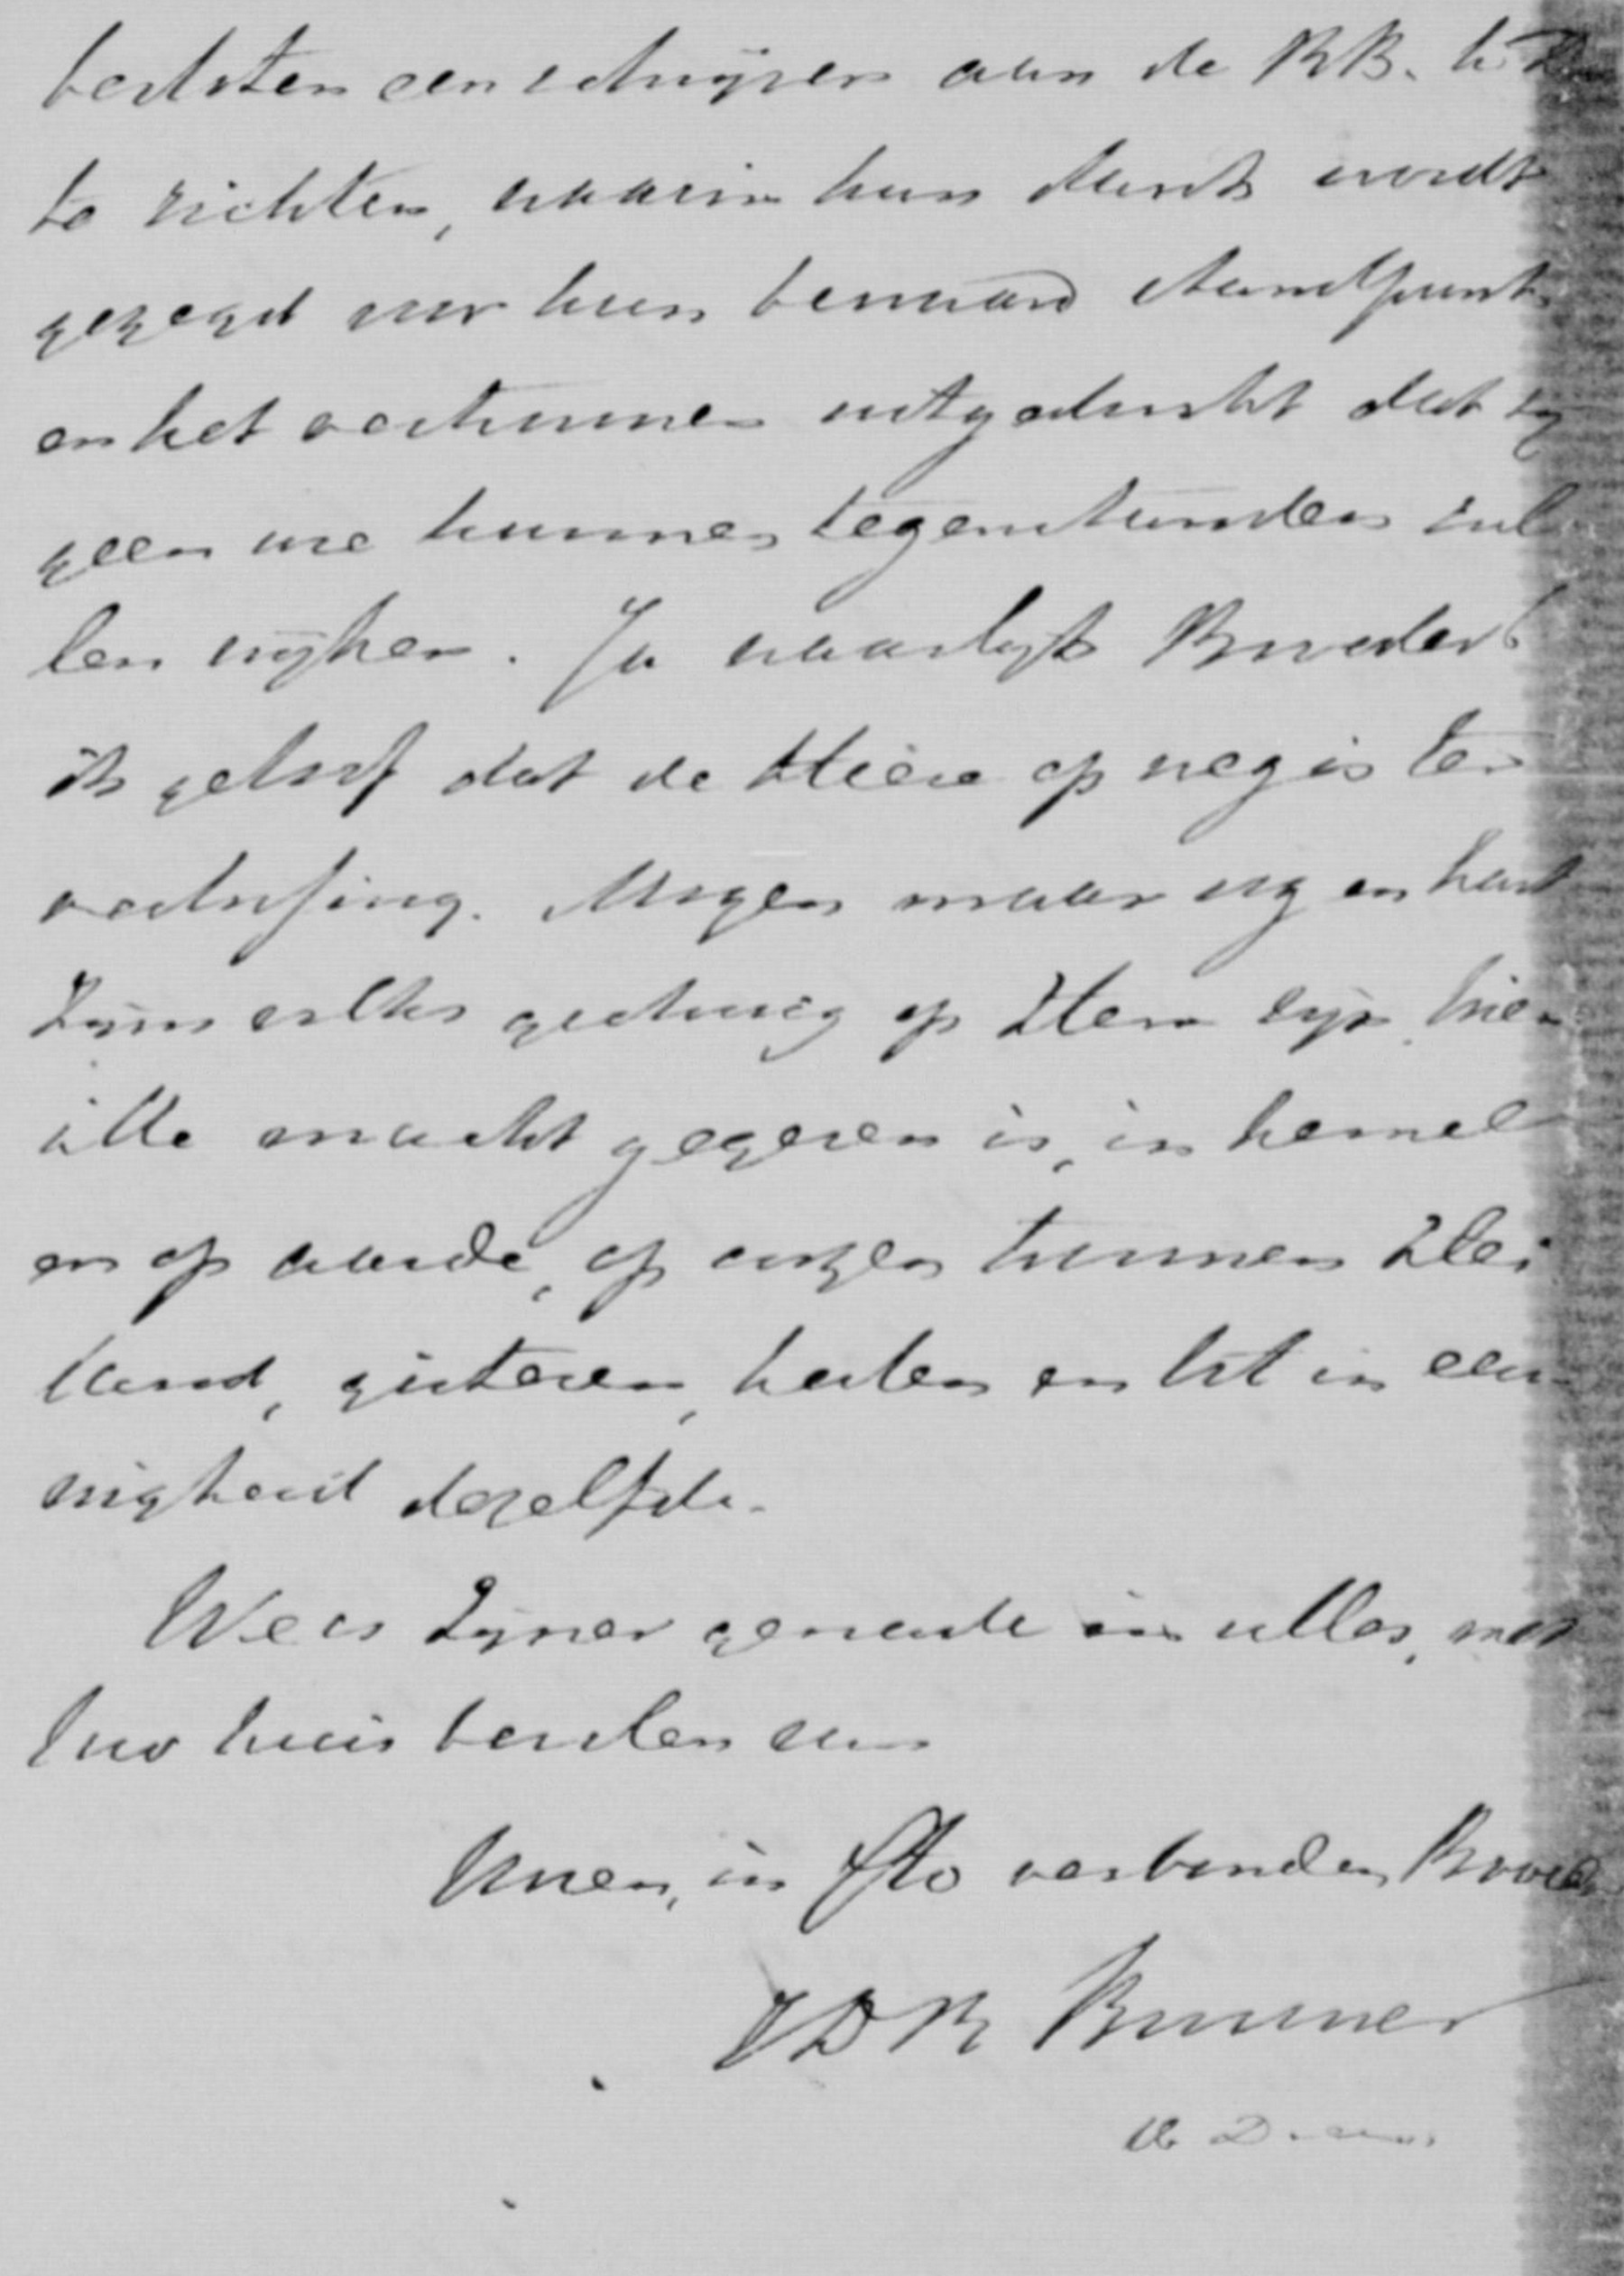 besloten een schrijven aan de BB. te
te richten, waarin hun dank wordt
gezegd voor hun bewaard standpunt
en het vertrouwen uitgedrukt dat zij
geen ure kunnen tegenstanders zul
len wijken. Ja waarlijk Broeder
ik geloof dat de Heere op weg is ter
verlossing. Mogen maar oog en hart
Zijns volks gedurig op Hem zijn, Wien
alle macht gegeven is, in hemel
en op aarde, op onzen trouwen Hei
land, gisteren, heden en tot in eeu
wigheid dezelfde.
Wees Zijner genade in alles, met
Uw huis bevolen van
Uwen, in Cto verbonden Broeder
JDR Brunner